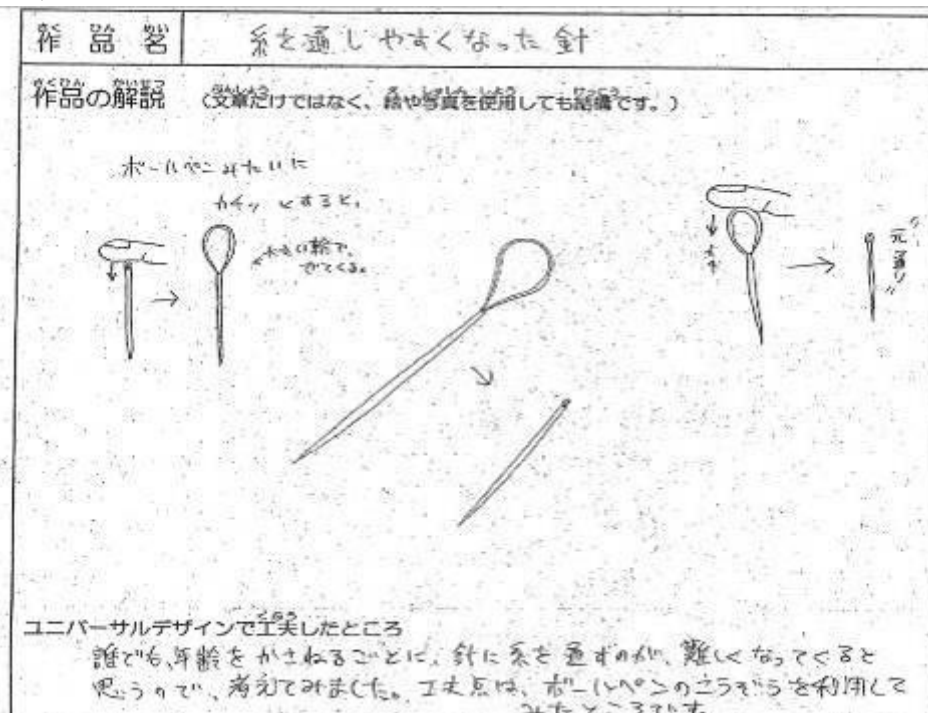 作品名 糸を通しやすくなった針
作品の解説 (文章だけではなく、絵や写真を使用しても結構です。)
ボールペンみたいに
カチッとすると、
大きい輪で、
でてくる。
元通り
ユニバーサルデザインで工夫したところ
誰でも、年齢をかさねるごとに、針に糸を通すのが、難しくなってくると
思うので、考えてみました。工夫点は、ボールペンのこうぞうを利用して
みたところです。